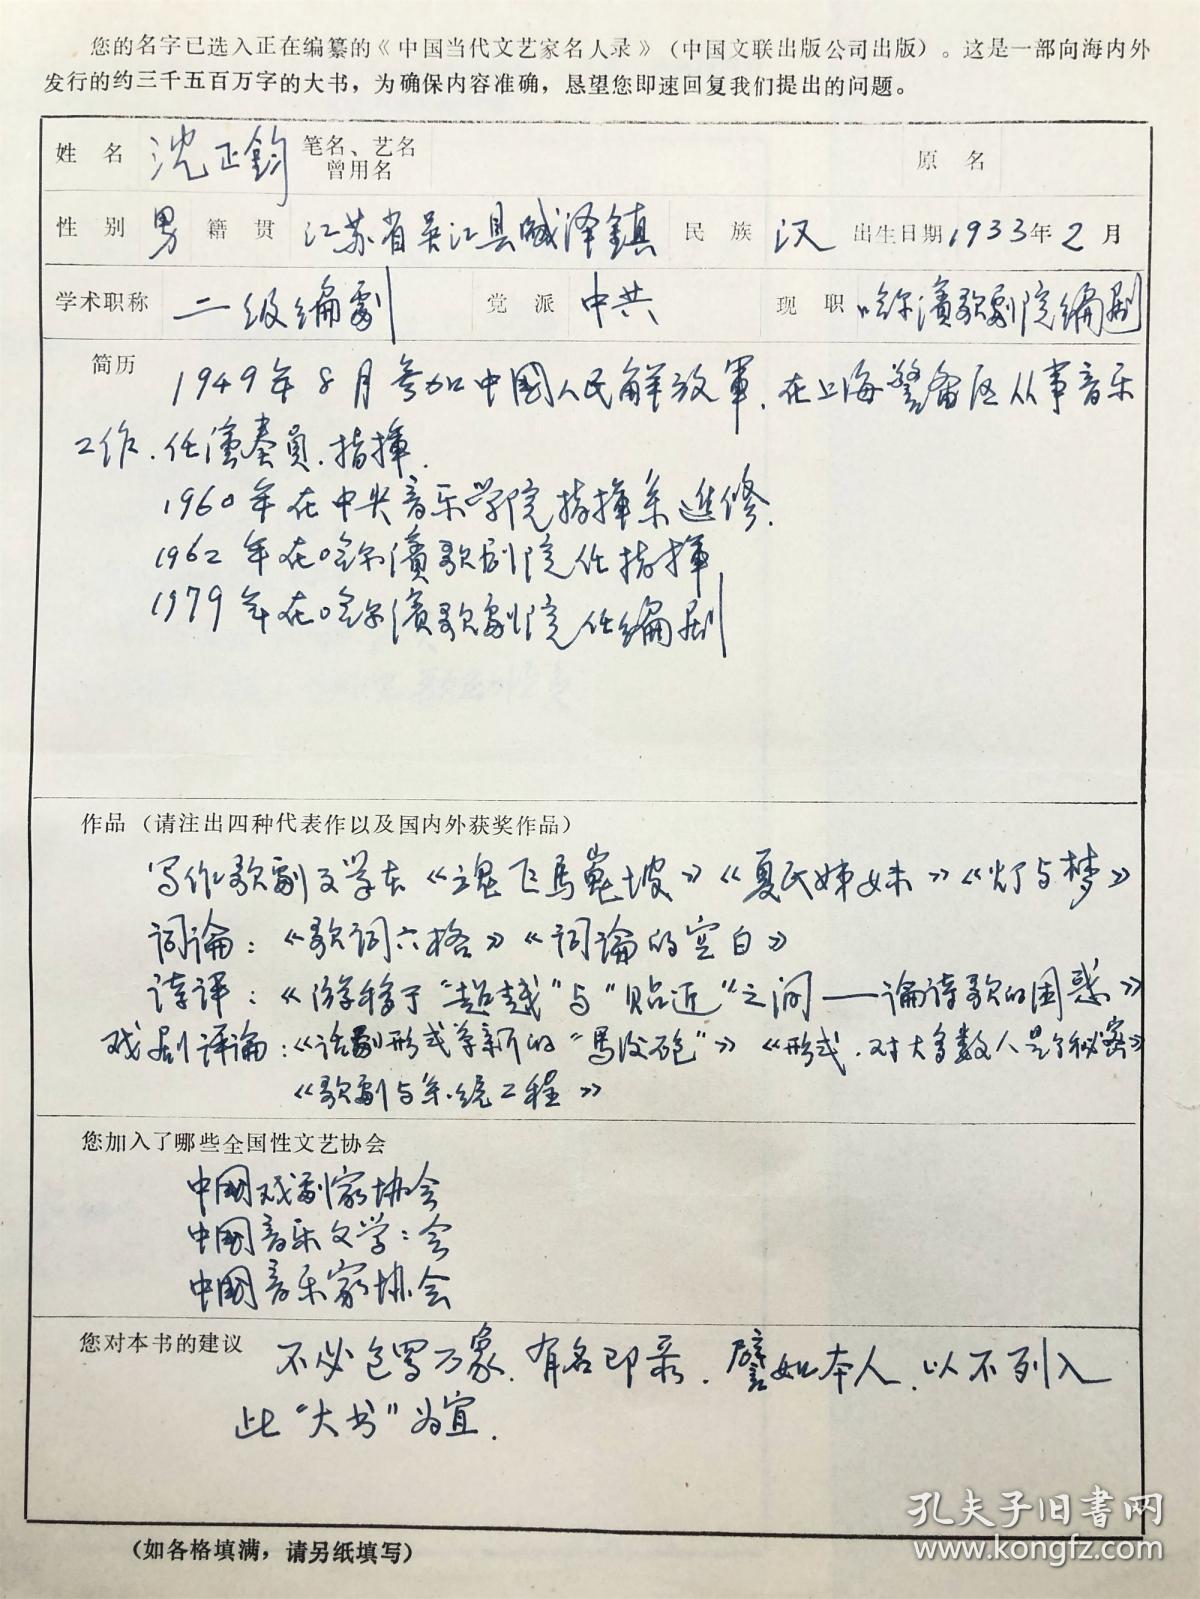 您的名字已选入正在编纂的《中国当代文艺家名人录》（中国文联出版公司出版）。这是一部向海内外
发行的约三千五百万字的大书，为确保内容准确，恳望您即速回复我们提出的问题。
姓名 沈正鈞 笔名、艺名 曾用名 原名
性别 男 籍贯 江苏省吴江县 泽鎮 民族 汉 出生日期 1933年2月
学术职称 二级编劇 党派 中共 现职 哈尔濱歌劇院编剧
简历 1949年8月参加中國人民解放軍．在上海警备区从事音乐
工作．任演奏員．指揮．
1960年在中央音乐学院指揮系进修．
1962年在哈尔濱歌剧院任指揮
1979年在哈尔濱歌劇院任编剧
作品（请注出四种代表作以及国内外获奖作品）
写作歌劇文学本《魂飞馬嵬坡》《夏氏姊妹》《灯与梦》
词論：《歌词六格》《词論的空白》
诗评：《游移于“超越”与“贴近”之间——論诗歌的困惑》
戏剧评論：《话劇形式革新的“馬后砲”》《形式．对大多数人是个秘密》
《歌劇与系统工程》
您加入了哪些全国性文艺协会
中國戏劇家协会
中國音乐文学:会
中國音乐家协会
您对本书的建议 不必包罗万象．有名即录．譬如本人．以不列入
此“大书”为宜．
（如各格填满，请另纸填写）
孔夫子旧書网
www.kongfz.com